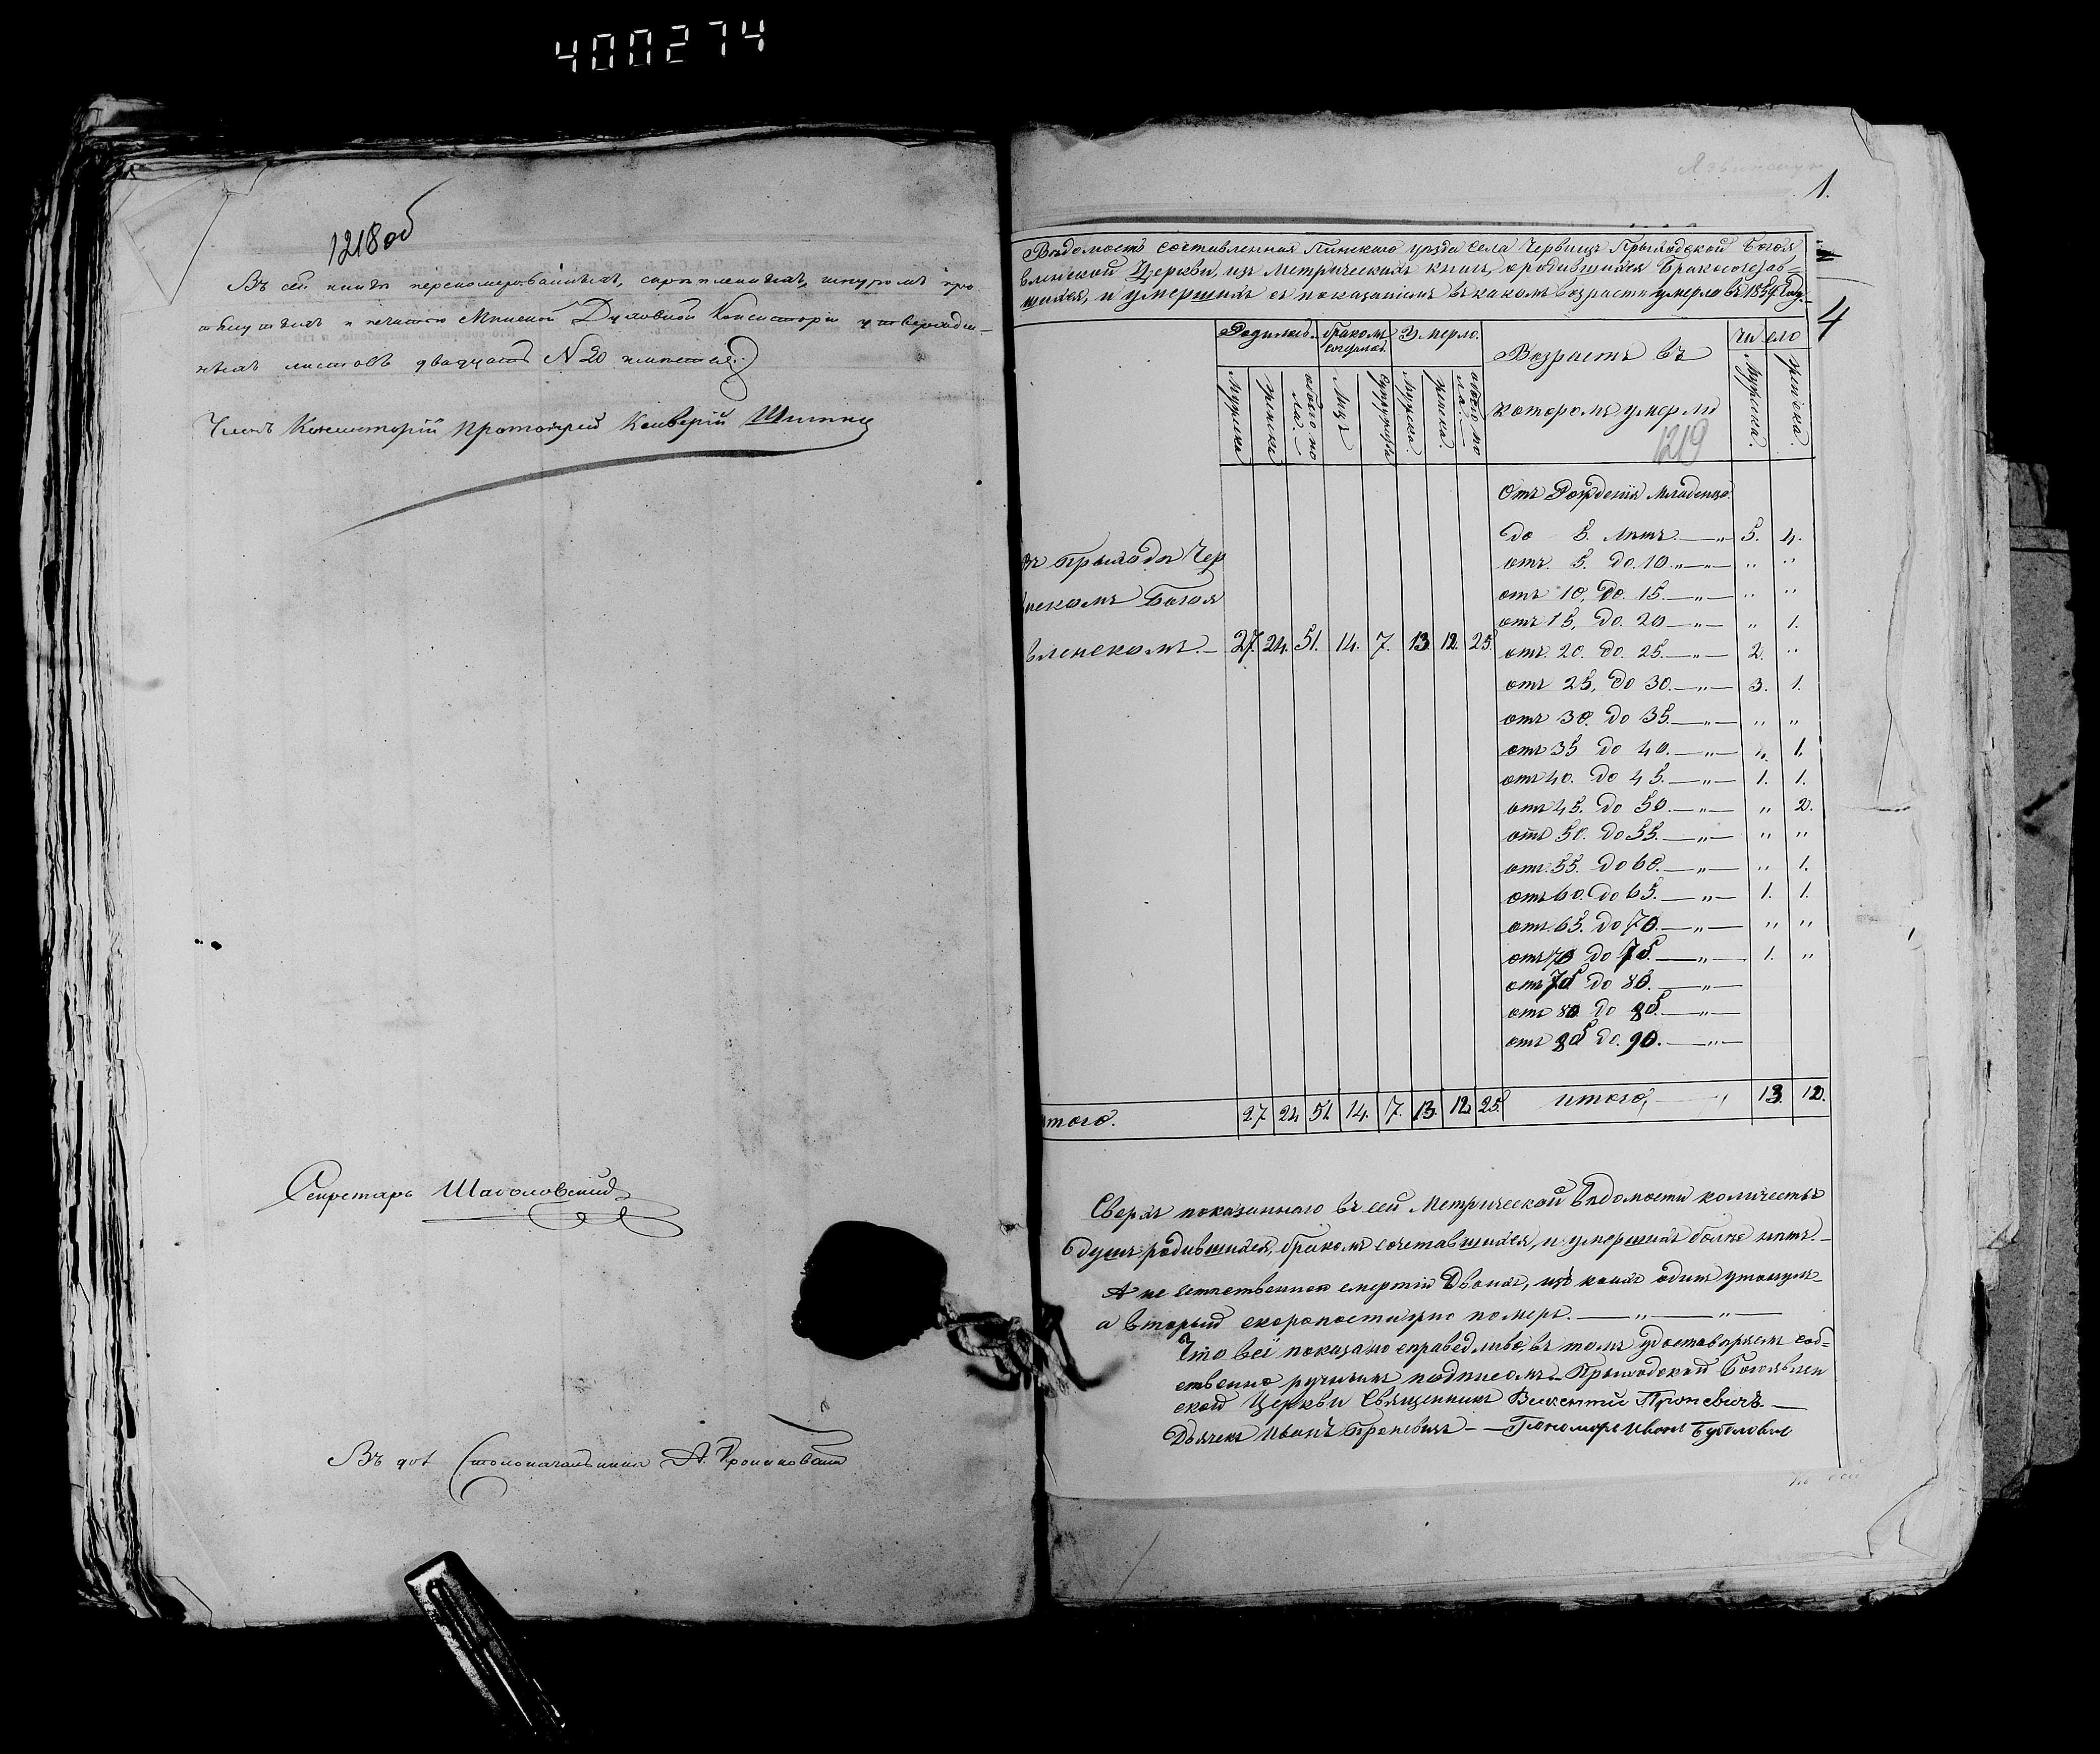 400274
1218об
Въ сей книгѣ переномерованныхъ, скрѣпленныхъ, шнуромъ про
и печатью Минской Духовной Консисторіи утвержден-
ныхъ листовъ двадцать N 20 имѣется
Членъ Консисторіи Протоіерей
Секретарь
Въ дол Столоначальника А.
1.
4
Вѣдомость составленная Пинскаго уѣзда села Червищъ Прыходской Богоя
вленской Церкви, изъ Метрическихъ книгъ, о родившихся Бракосочетав-
шихся, и умершихъ съ показаніемъ въ какомъ возрастѣ умерло въ 1859. Году.
Родилось. бракомъ сочеталось Умерло. Возрастъ въ которомъ умерли Число
Мужска Женска обоего по ла Лицъ Супружествъ Мужска. Женска. обоего по ла. Мужска. Женска.
1219
Отъ Рожденія младенцо.
до 5. лѣтъ — „ 5. 4.
отъ. 5. до. 10. „ — „ „
отъ 10. до. 15. — „ — „ „
отъ 15. до. 20 — „ — „ 1.
Въ Прыходѣ Чер
Богоя
вленскомъ. — 27. 24. 51. 14. 7. 13. 12. 25.
отъ. 20. до. 25. — „ — 2. „
отъ 25. до 30. — „ — 3. 1.
отъ 30. до 35. — „ — „ „
отъ 35 до 40. — „ — „ 1.
отъ 40. до 45. — „ — 1. 1.
отъ 45. до 50. — „ — „ 2.
отъ 50. до 55. — „ — „ „
отъ 55. до 60. — „ — „ 1.
отъ 60. до 65. — „ — 1. 1.
отъ 65. до 70. — „ — „ „
отъ 70 до 75. — „ — 1. „
отъ 75 до 80. — „ —
отъ 80 до 85. — „ —
отъ 85 до. 90. — „ —
итого. 27 24 51 14. 7. 13. 12 25. итого, — „ 13. 12.
Сверхъ показаннаго въ сей Метрической вѣдомости количества
душъ родившихся, бракомъ сочетавшихся, и умершихъ болѣе нѣтъ. —
А не естественной смертій двоихъ, изъ коихъ одинъ утонулъ
а вторый скоропостижно померъ. — „ — „ —
Что всё показано справедливо, въ томъ удостоверяемъ соб-
ственно ручнымъ подписомъ. Прыходской Богоявлен
ской Церкви Священникъ Викентій
Дьячекъ Иванъ — Пономарь Иванъ